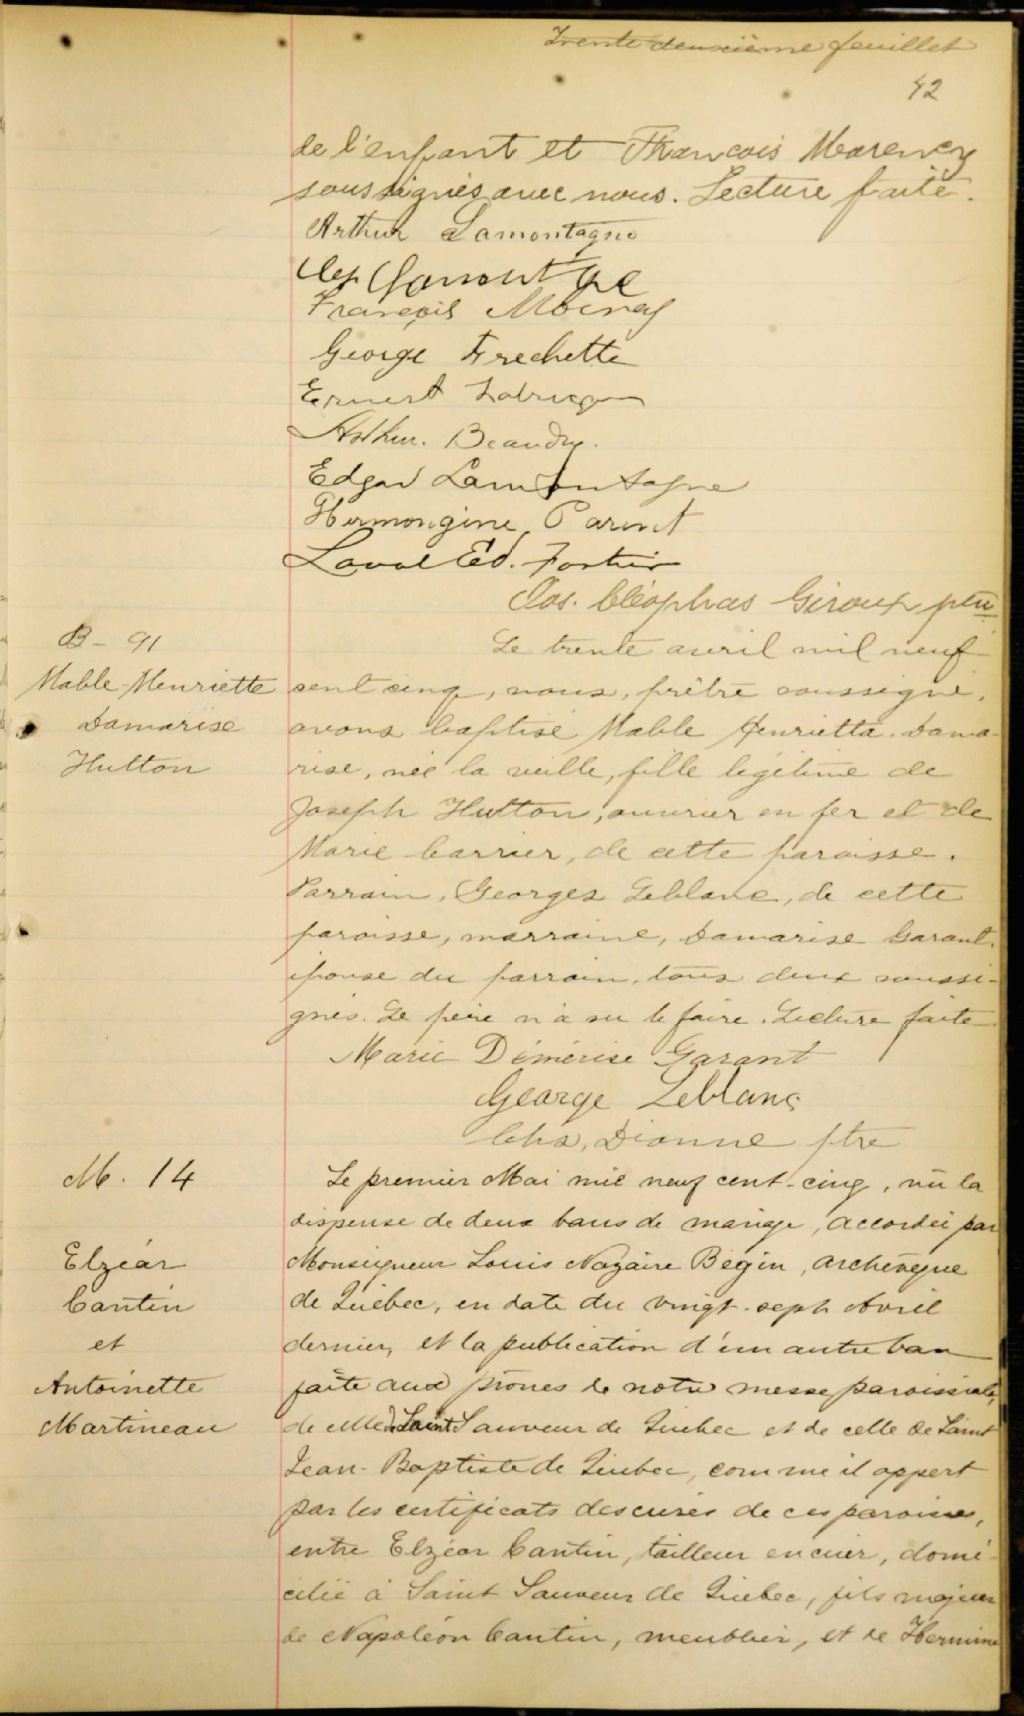 Trente deuxième feuillet
42
de l'enfant et François Marency
soussignés avec nous. Lecture faite.
Arthur Lamontagne
François
George Frechette
Ernest
Arthur. Beaudry.
Edgar Lamontagne
Hermongine Parent
Laval Ed. Fortier
Jos. Cléophas Giroux ptre
B - 91
Mable-Henriette
Damarise
Hutton
Le trente avril mil neuf
cent cinq, nous, prêtre soussigné,
avons baptisé Mable Henrietta Dama-
rise, née la veille, fille légitime de
Joseph Hutton, ouvrier en fer et de
Marie Carrier, de cette paroisse.
Parrain, Georges Leblanc, de cette
paroisse, marraine, Damarise Garant,
épouse du parrain, tous deux soussi-
gnés. Le père n'a su le faire. Lecture faite
Marie Démérise Garant
George Leblanc
Chs, Dionne ptre
M. 14
Elzéar
Cantin
et
Antoinette
Martineau
Le premier Mai mil neuf cent-cinq, vû la
dispense de deux bans de mariage, accordée par
Monseigneur Louis Nazaire Bégin, archevêque
de Québec, en date du vingt-sept Avril
dernier, et la publication d'un autre ban
faite aux prônes de notre messe paroissiale,
de celle de Saint Sauveur de Québec et de celle de Saint
Jean-Baptiste de Québec, comme il appert
par les certificats des curés de ces paroisses,
entre Elzéar Cantin, tailleur en cuir, domi-
cilié à Saint Sauveur de Québec, fils majeur
de Napoléon Cantin, meublier, et de Hermine